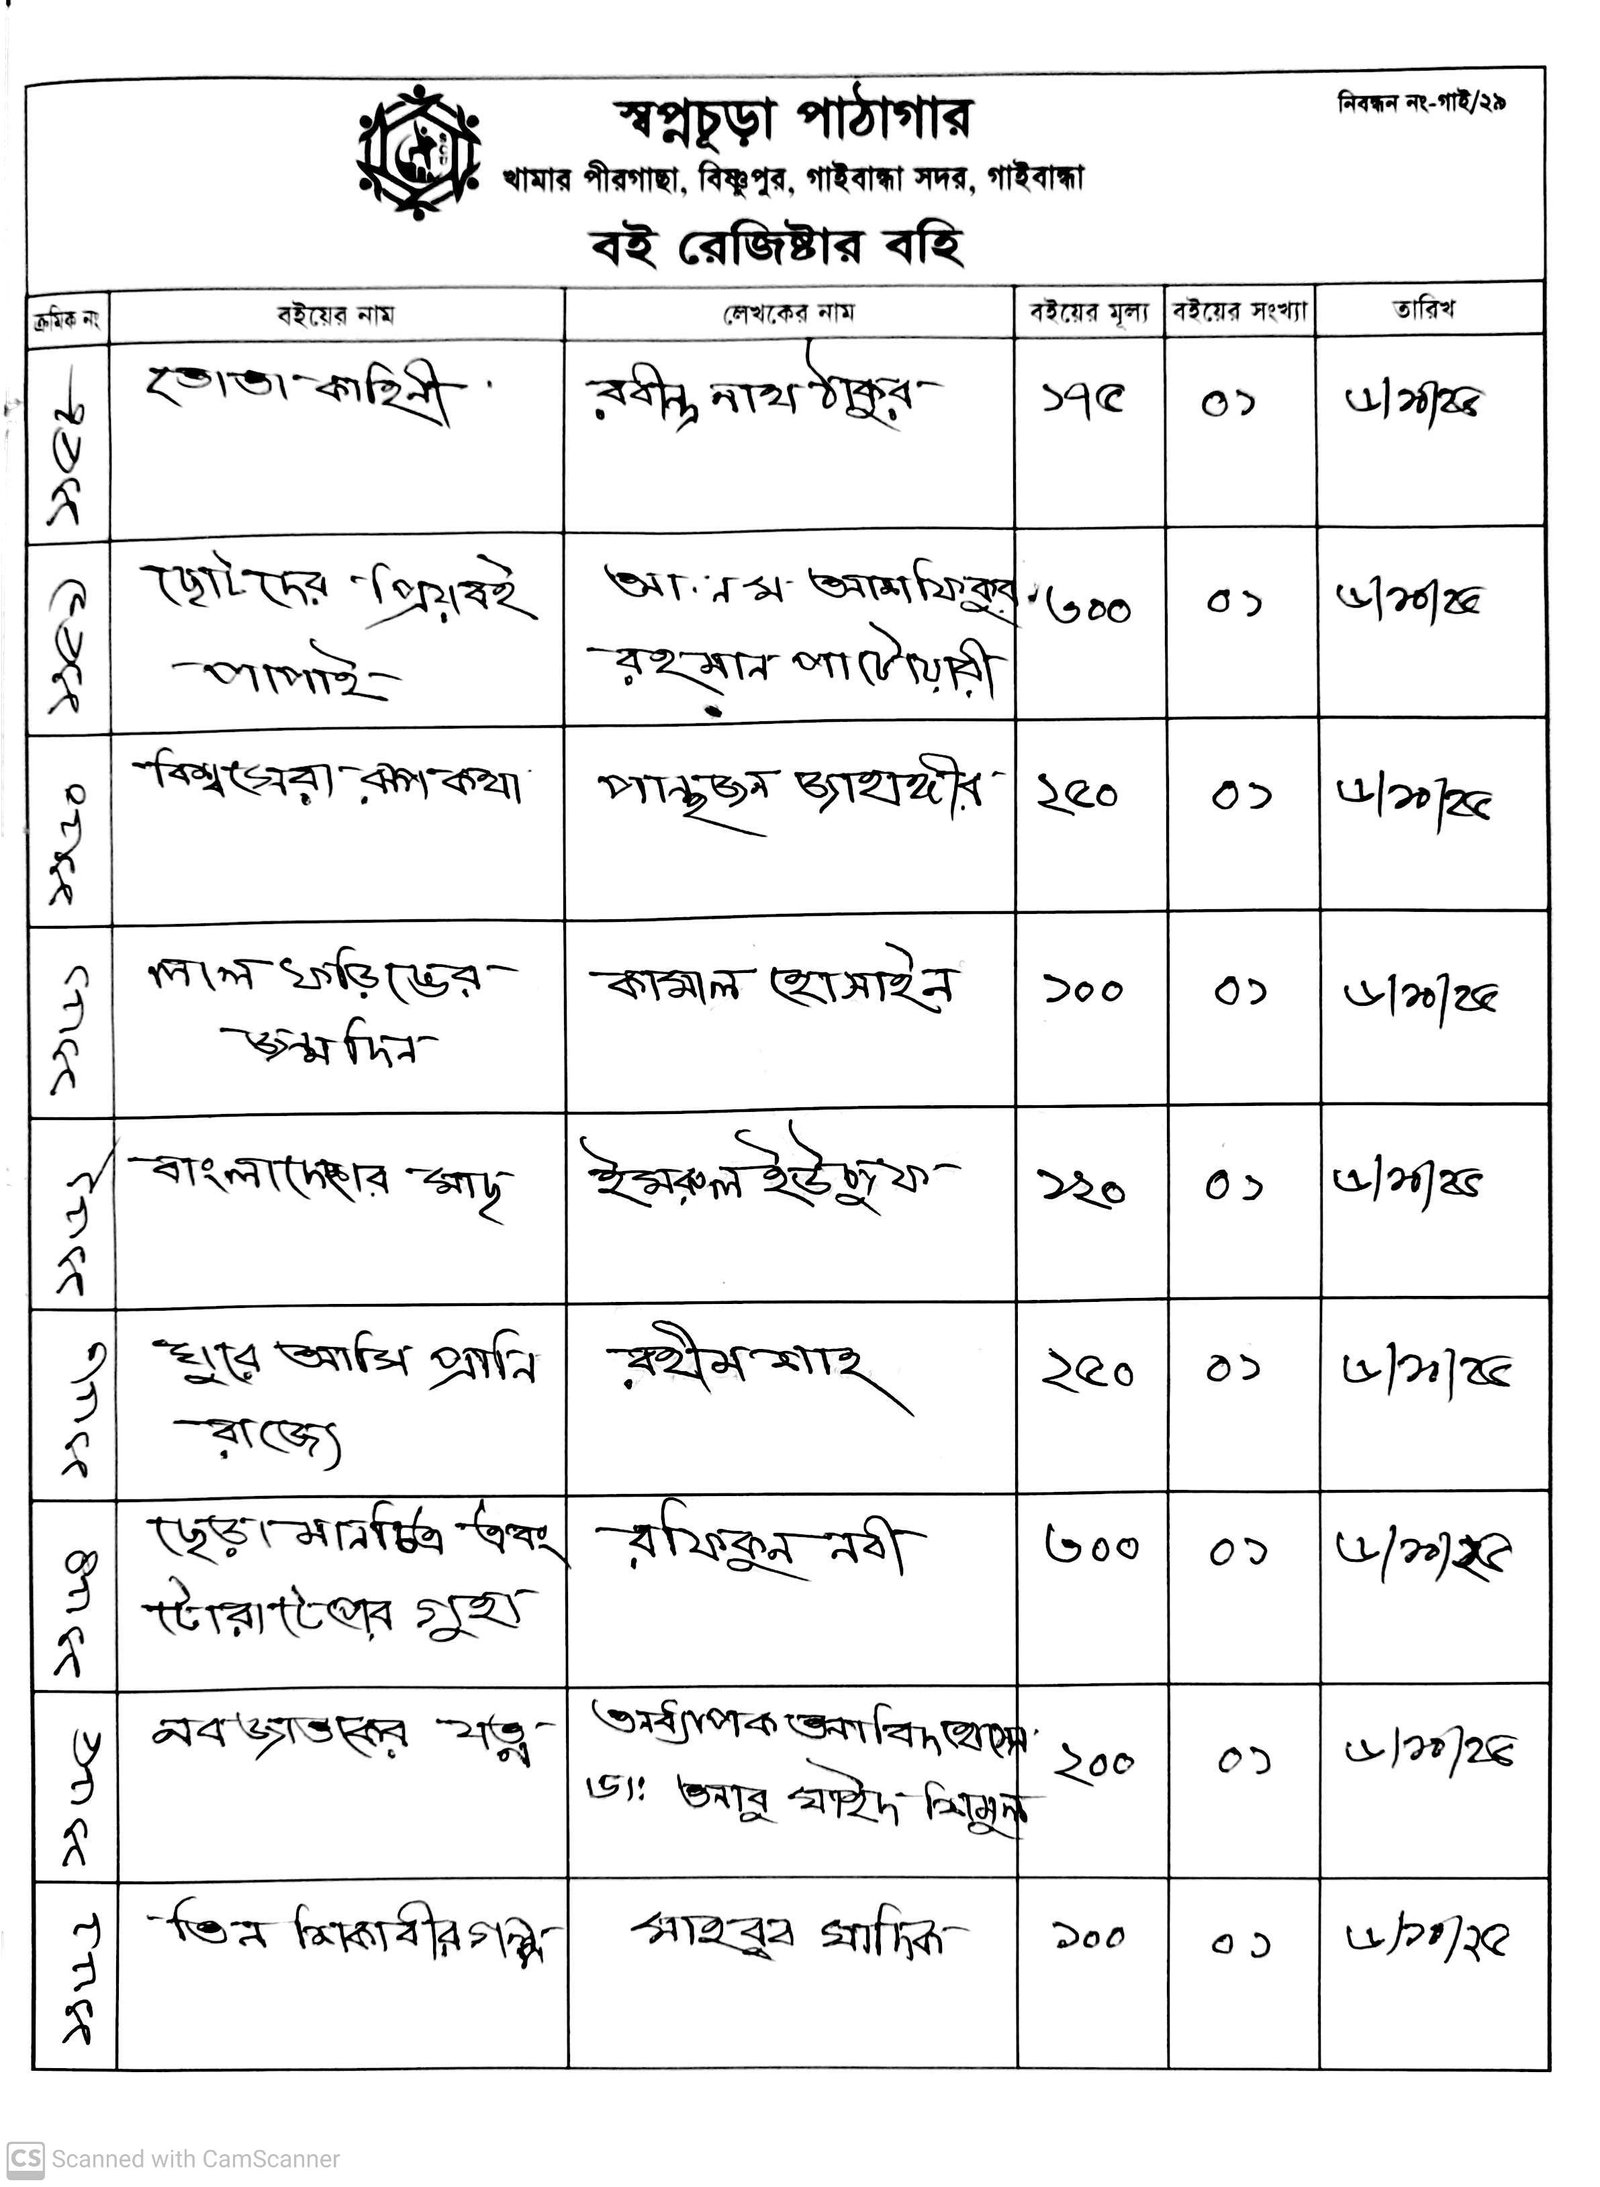 নিবন্ধন নং-গাই/২৯
স্বপ্নচূড়া পাঠাগার
খামার পীরগাছা, বিষ্ণুপুর, গাইবান্ধা সদর, গাইবান্ধা
বই রেজিষ্টার বহি
ক্রমিক নং বইয়ের নাম লেখকের নাম বইয়ের মূল্য বইয়ের সংখ্যা তারিখ
তোতা কাহিনী রবীন্দ্র নাথ ঠাকুর ১৭৫ ০১ ৬/১০/২৫
ছোটদের প্রিয় বই আ.ন.ম আশফিকুর ৩০০ ০১ ৬/১০/২৫
পাপাই রহমান পাটোয়ারী
বিশ্বসেরা রূপকথা পান্থজন জাহাঙ্গীর ২৫০ ০১ ৬/১০/২৫
লাল ফড়িঙের কামাল হোসাইন ১০০ ০১ ৬/১০/২৫
জন্মদিন
বাংলাদেশের মাছ ইমরুল ইউসুফ ১২০ ০১ ৬/১০/২৫
ঘুরে আসি প্রানি রহীম শাহ ২৫০ ০১ ৬/১০/২৫
রাজ্যে
ছেড়া মানচিত্র এবং রফিকুন নবী ৩০০ ০১ ৬/১০/২৫
টোরাটেপের গুহা
নবজাতকের যত্ন অধ্যাপক আবিদ হোসেন ২০০ ০১ ৬/১০/২৫
ডা: আবু সাইদ শিমুল
তিন শিকারীর গল্প মাহবুব সাদিক ১০০ ০১ ৬/১০/২৫
CS Scanned with CamScanner